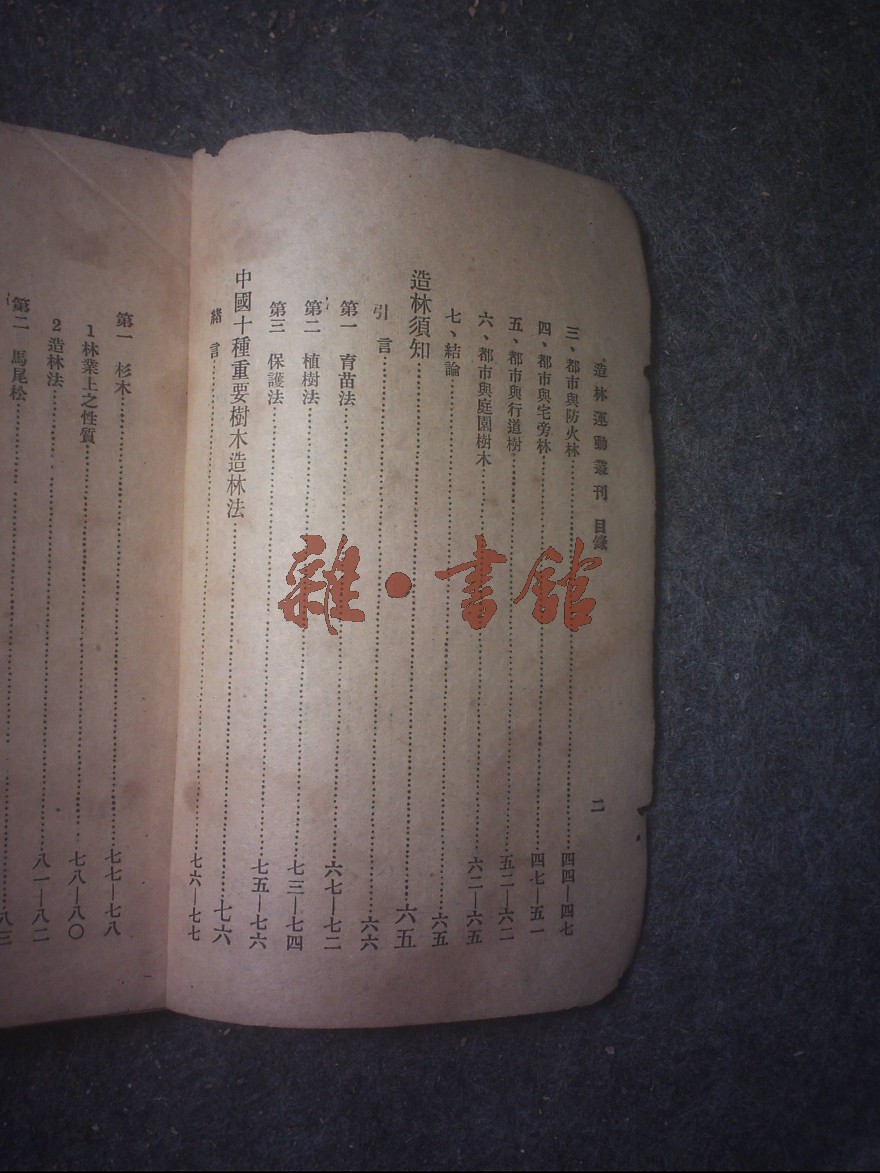 造林運動叢刊 目錄
二
三、都市與防火林……四四—四七
四、都市與宅旁林……四七—五一
五、都市與行道樹……五二—六二
六、都市與庭園樹木……六二—六五
七、結論……六五
造林須知……六五
引言……六六
第一 育苗法……六七—七二
第二 植樹法……七三—七四
第三 保護法……七五—七六
中國十種重要樹木造林法……七六
緒言……七六—七七
第一 杉木……七七—七八
1 林業上之性質……七八—八〇
2 造林法……八一—八二
第二 馬尾松……八三
雜·書館